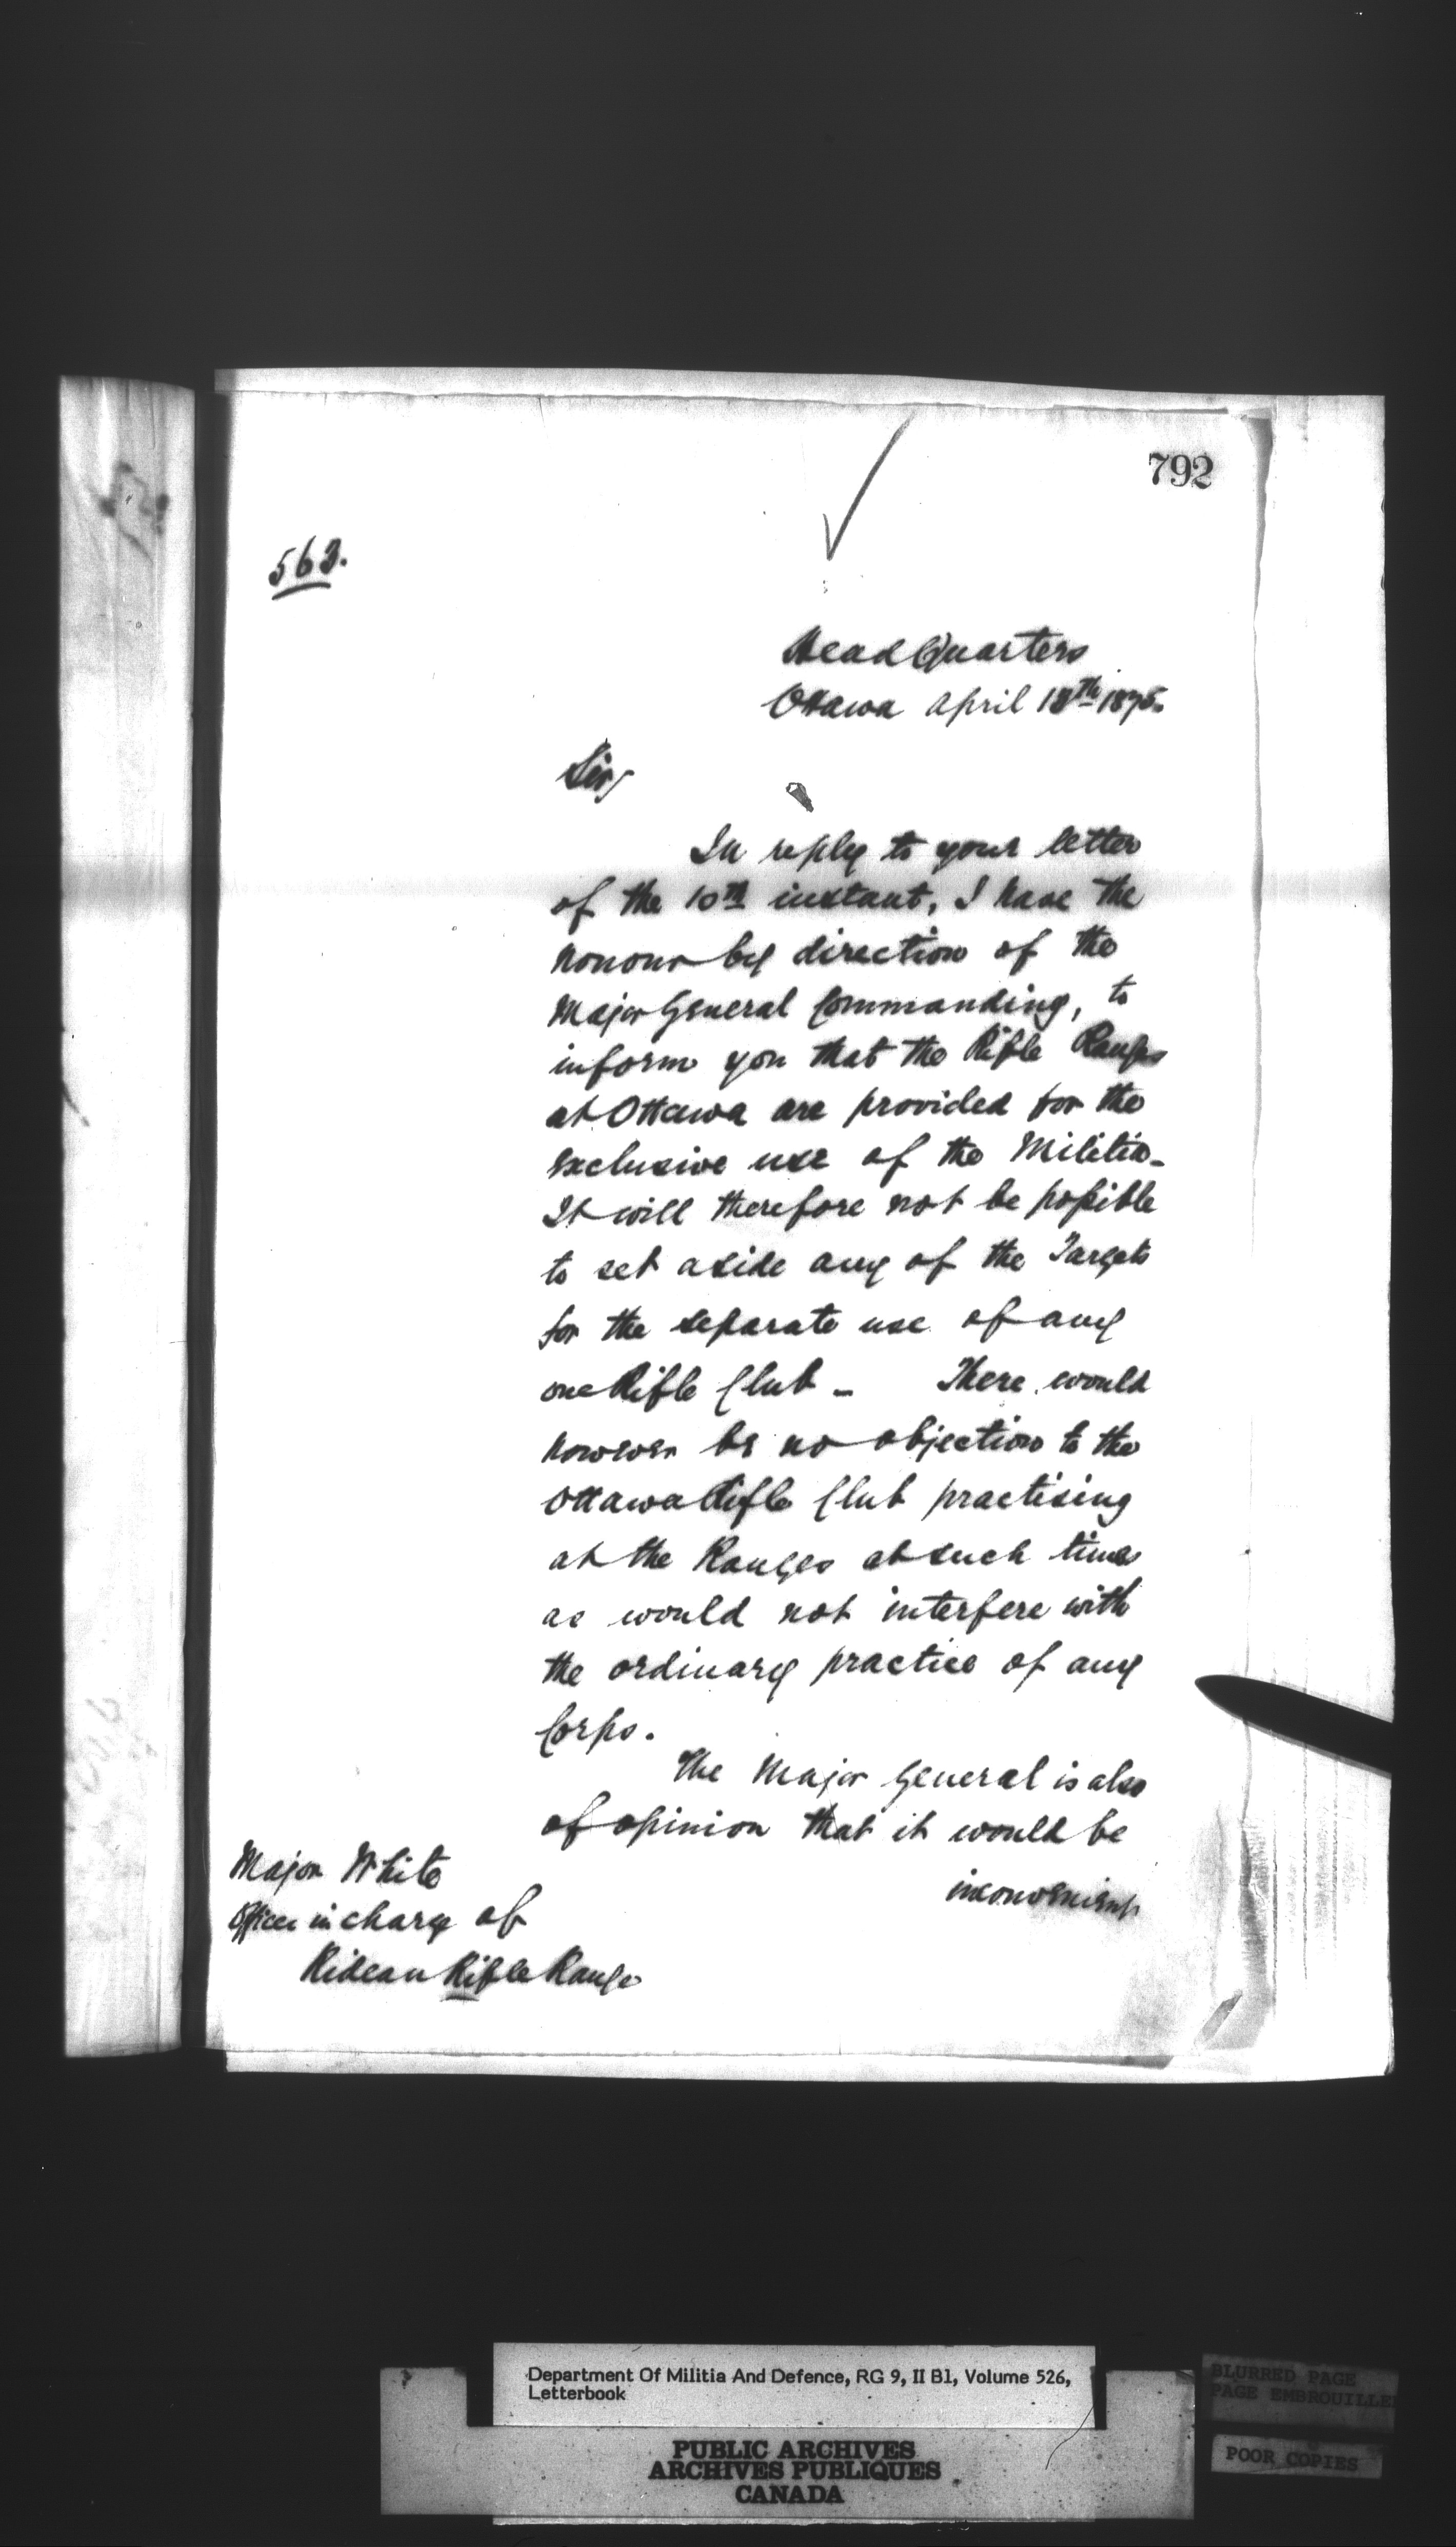 792
563.
Head Quarters
Ottawa April 18th 1875.
Sir,
In reply to your letter
of the 10th instant, I have the
honour by direction of the
Major General Commanding, to
inform you that the Rifle Ranges
at Ottawa are provided for the
exclusive use of the Militia -
It will therefore not be possible
to set aside any of the Targets
for the separate use of any
one Rifle Club - There would
however be no objection to the
Ottawa Rifle Club practising
at the Ranges at such times
as would not interfere with
the ordinary practice of any
Corps.
The Major General is also
of opinion that it would be
Major White
Officer in charge of
Rideau Rifle Range
Department Of Militia And Defence, RG 9, II B1, Volume 526,
Letterbook
PUBLIC ARCHIVES
ARCHIVES PUBLIQUES
CANADA
BLURRED PAGE
PAGE EMBROUILLEE
POOR COPIES